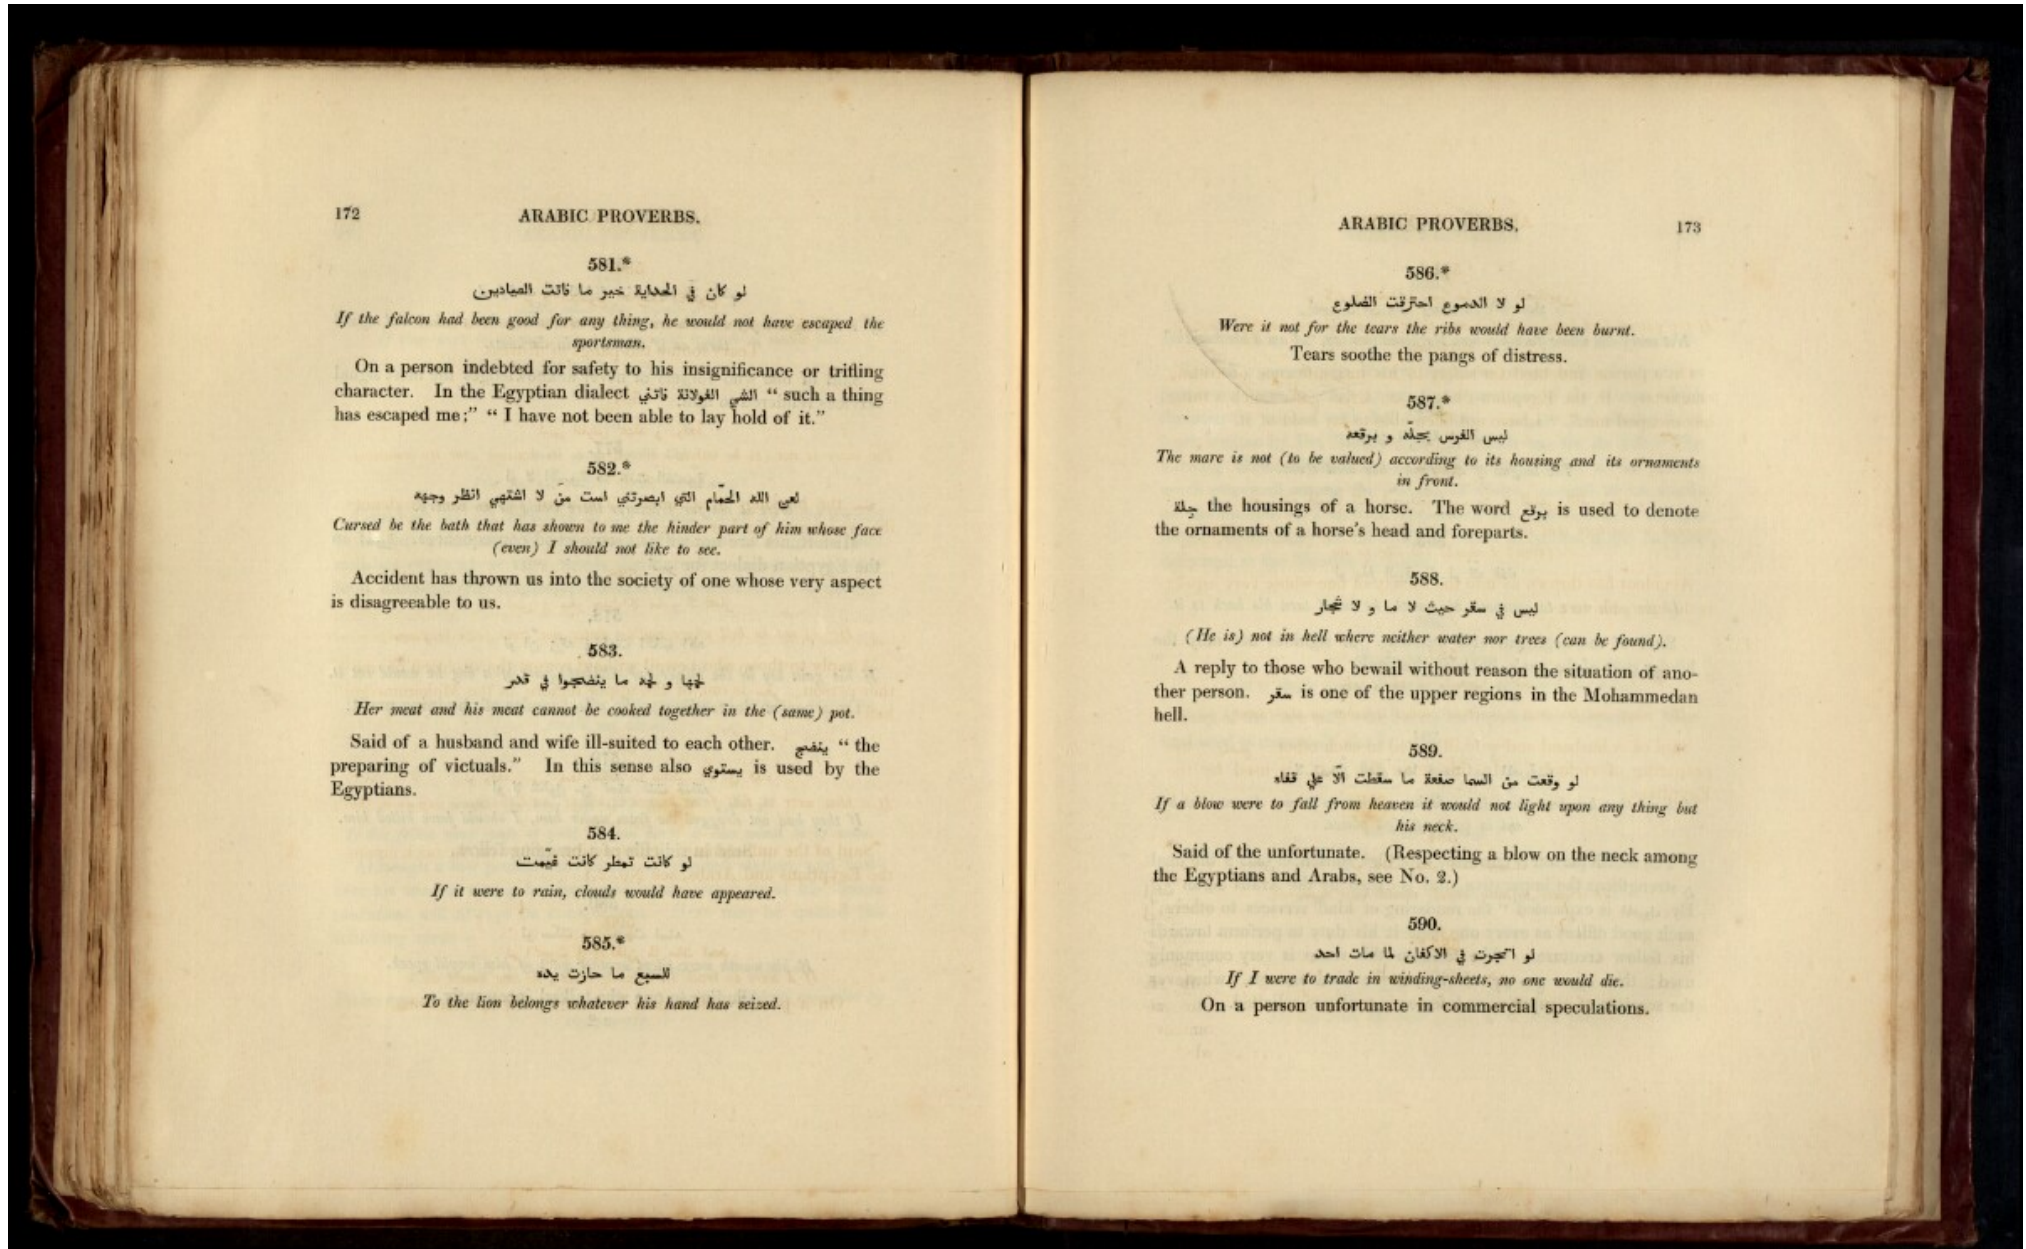 172
ARABIC PROVERBS.
581.*
لو كان في الحداية خير ما فاتت الصيادين
If the falcon had been good for any thing, he would not have escaped the
sportsman.
On a person indebted for safety to his insignificance or trifling
character. In the Egyptian dialect الشي الفولانة فاتني “ such a thing
has escaped me;” “ I have not been able to lay hold of it.”
582.*
لعن الله الحمّام التي ابصرتني است منّ لا اشتهي انظر وجهه
Cursed be the bath that has shown to me the hinder part of him whose face
(even) I should not like to see.
Accident has thrown us into the society of one whose very aspect
is disagreeable to us.
583.
لحمها و لحمه ما ينضجوا في قدر
Her meat and his meat cannot be cooked together in the (same) pot.
Said of a husband and wife ill-suited to each other. ينضج “ the
preparing of victuals.” In this sense also يستوي is used by the
Egyptians.
584.
لو كانت تمطر كانت غيّمت
If it were to rain, clouds would have appeared.
585.*
للسبع ما حازت يده
To the lion belongs whatever his hand has seized.
ARABIC PROVERBS.
173
586.*
لو لا الدموع احترقت الضلوع
Were it not for the tears the ribs would have been burnt.
Tears soothe the pangs of distress.
587.*
ليس الفرس بجلّه و برقعه
The mare is not (to be valued) according to its housing and its ornaments
in front.
جلة the housings of a horse. The word برقع is used to denote
the ornaments of a horse’s head and foreparts.
588.
ليس في سقر حيث لا ما و لا شجار
(He is) not in hell where neither water nor trees (can be found).
A reply to those who bewail without reason the situation of ano-
ther person. سقر is one of the upper regions in the Mohammedan
hell.
589.
لو وقعت من السما صفعة ما سقطت الّا علي قفاه
If a blow were to fall from heaven it would not light upon any thing but
his neck.
Said of the unfortunate. (Respecting a blow on the neck among
the Egyptians and Arabs, see No. 2.)
590.
لو اتجرت في الاكفان لما مات احد
If I were to trade in winding-sheets, no one would die.
On a person unfortunate in commercial speculations.